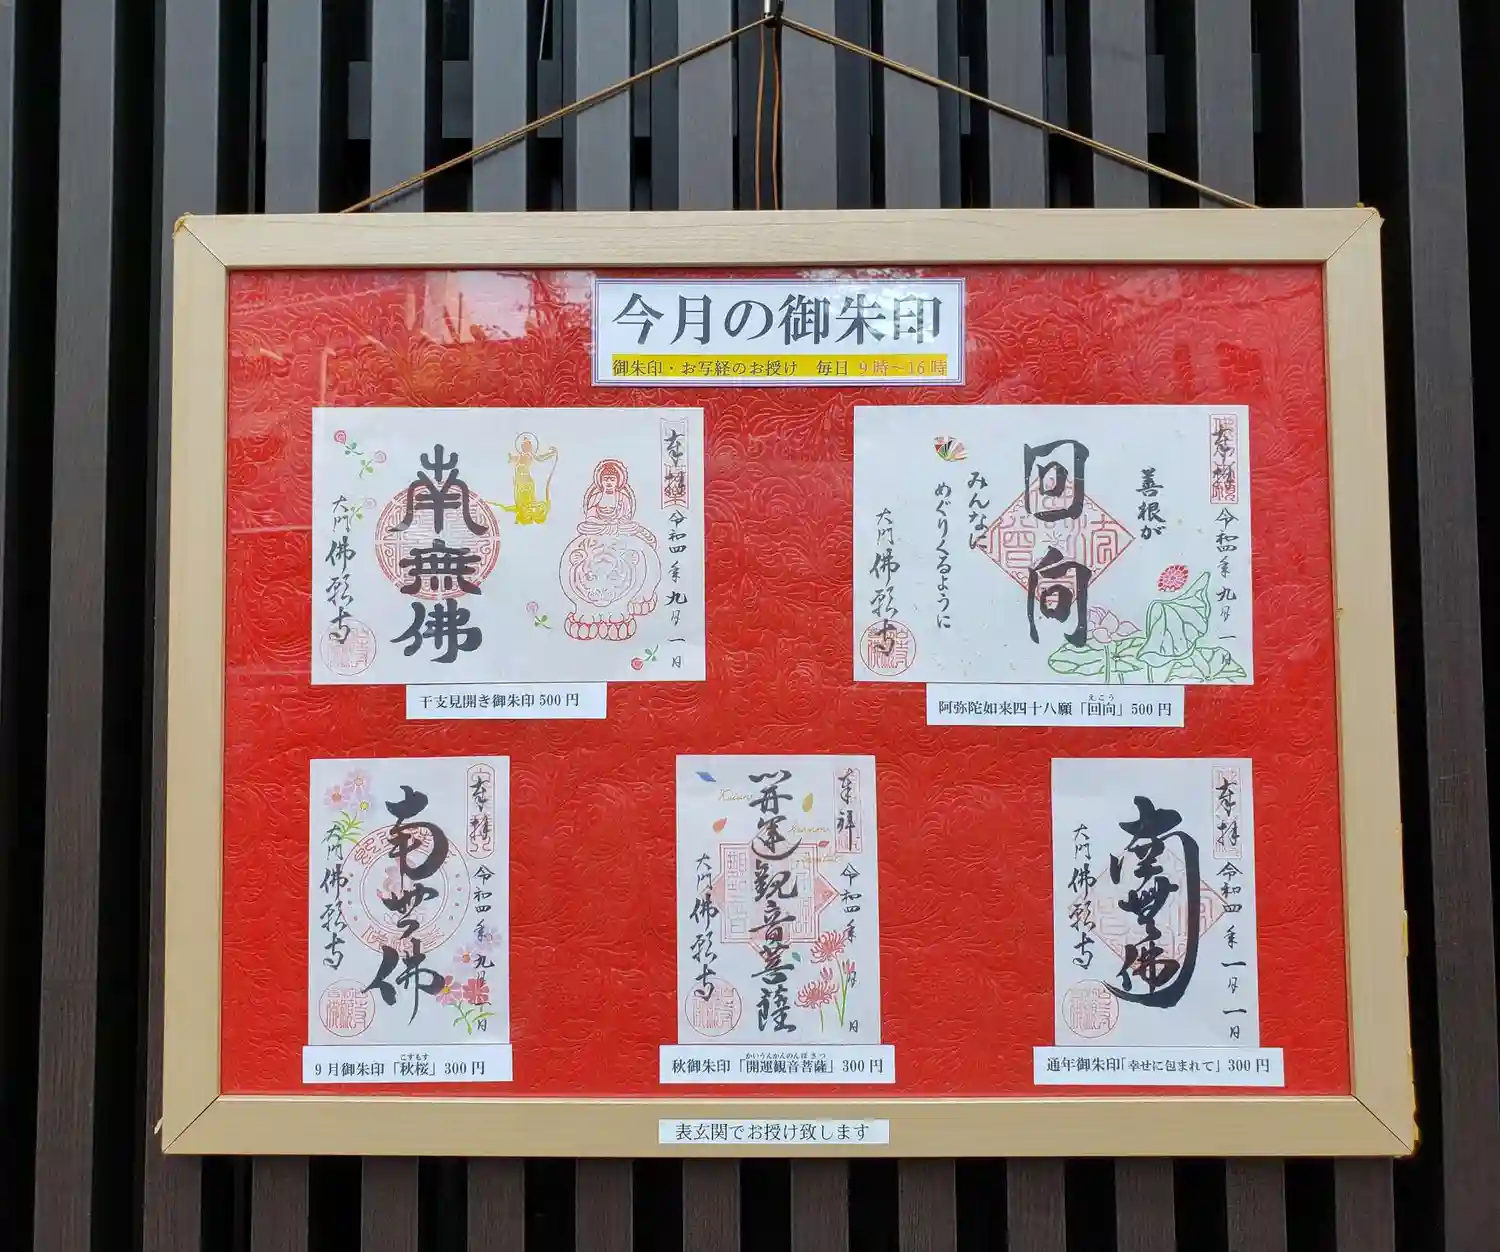 今月の御朱印
御朱印・お写経のお授け 毎日 9時～16時
奉拝
令和四年九月一日
南無佛
大門 佛願寺
干支見開き御朱印500円
奉拝
令和四年九月一日
善根が
回向
みんなに
めぐりくるように
大門 佛願寺
えこう
阿弥陀如来四十八願「回向」500円
奉拝
令和四年九月一日
南無佛
大門 佛願寺
こすもす
9月御朱印「秋桜」300円
奉拝
令和四年 月 日
開運観音菩薩
大門 佛願寺
かいうんかんのんぼさつ
秋御朱印「開運観音菩薩」300円
奉拝
令和四年一月一日
南無佛
大門 佛願寺
通年御朱印「幸せに包まれて」300円
表玄関でお授け致します